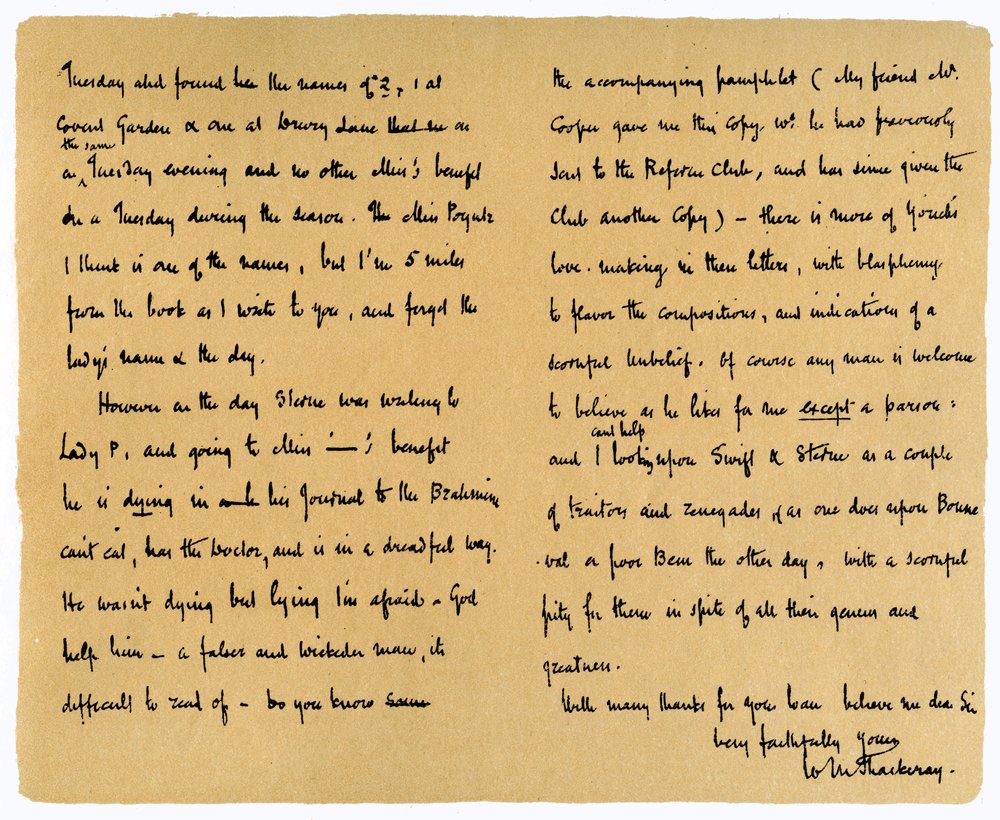 Tuesday and found her the names of 2, 1 at
Covent Garden & one at Drury Lane that ne on
the same
a Tuesday evening and no other Miss's benefit
on a Tuesday during the season. The Miss Poyntz
I think is one of the names, but I'm 5 miles
from the book as I write to you, and forget the
lady's name & the day.
However on the day Sterne was writing to
Lady P, and going to Miss '—'s benefit
he is dying in his Journal to the Brahmine
can't eat, has the Doctor, and is in a dreadful way.
He wasn't dying but lying I'm afraid – God
help him – a falser and wickeder man, its
difficult to read of – Do you know some
the accompanying pamphlet (My friend Mr.
Cooper gave me this copy wh. he had previously
sent to the Reform Club, and has since given the
Club another Copy) – there is more of Yorick's
love-making in these letters, with blasphemy
to flavor the compositions, and indications of a
scornful unbelief. Of course any man is welcome
to believe as he likes for me except a parson:
cant help
and I looking upon Swift & Sterne as a couple
of traitors and renegades, (as one does upon Bonne
-val or poor Bem the other day, with a scornful
pity for them in spite of all their genius and
greatness.
With many thanks for your loan believe me dear Sir
Very faithfully Yours
W M Thackeray.